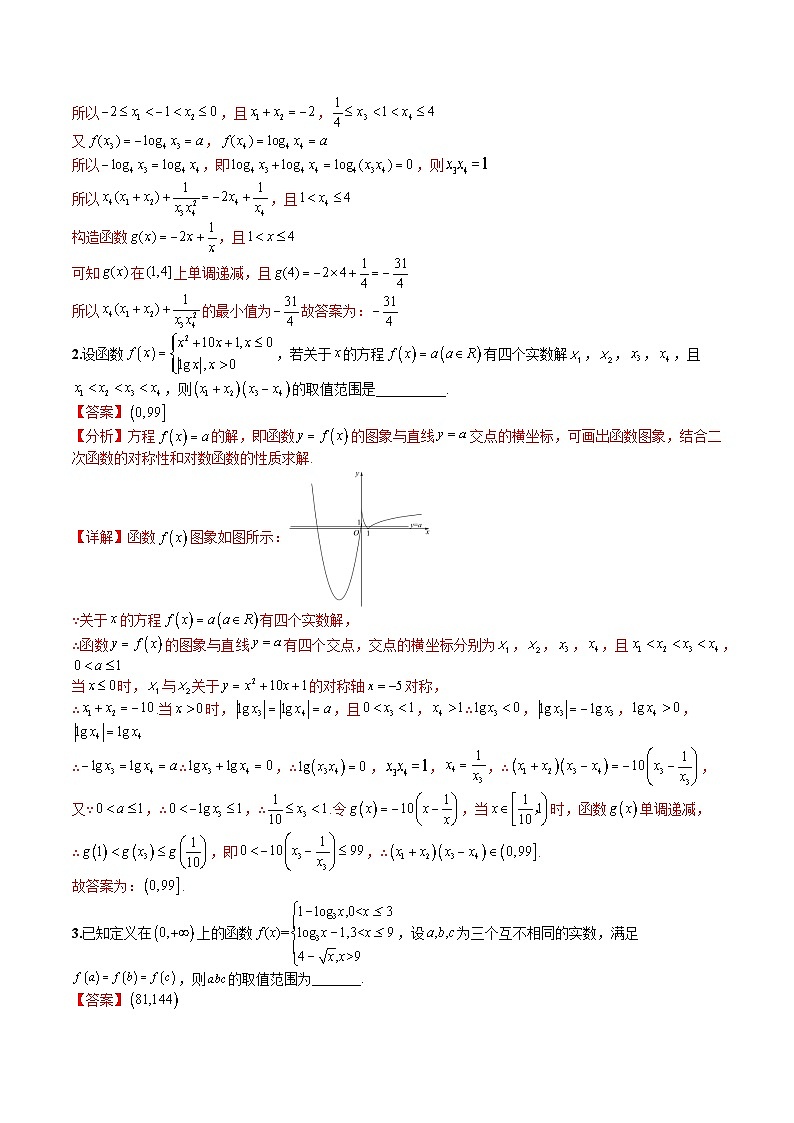 所以 −2 ≤ x₁ < −1 < x₂ ≤ 0，且 x₁ + x₂ = −2，1/4 ≤ x₃ < 1 < x₄ ≤ 4
又 f(x₃) = −log₄ x₃ = a，f(x₄) = log₄ x₄ = a
所以 −log₄ x₃ = log₄ x₄，即 log₄ x₃ + log₄ x₄ = log₄(x₃x₄) = 0，则 x₃x₄ = 1
所以 x₄(x₁ + x₂) + 1/(x₃x₄²) = −2x₄ + 1/x₄，且 1 < x₄ ≤ 4
构造函数 g(x) = −2x + 1/x，且 1 < x ≤ 4
可知 g(x) 在 (1,4] 上单调递减，且 g(4) = −2×4 + 1/4 = −31/4
所以 x₄(x₁ + x₂) + 1/(x₃x₄²) 的最小值为 −31/4 故答案为：−31/4
2.设函数 f(x) = { x² + 10x + 1, x ≤ 0; |lg x|, x > 0，若关于 x 的方程 f(x) = a (a∈R) 有四个实数解 x₁，x₂，x₃，x₄，且
x₁ < x₂ < x₃ < x₄，则 (x₁ + x₂)(x₃ − x₄) 的取值范围是__________.
【答案】(0,99]
【分析】方程 f(x) = a 的解，即函数 y = f(x) 的图象与直线 y = a 交点的横坐标，可画出函数图象，结合二
次函数的对称性和对数函数的性质求解.
【详解】函数 f(x) 图象如图所示：
y
1
y=a
O 1 x
∵关于 x 的方程 f(x) = a (a∈R) 有四个实数解，
∴函数 y = f(x) 的图象与直线 y = a 有四个交点，交点的横坐标分别为 x₁，x₂，x₃，x₄，且 x₁ < x₂ < x₃ < x₄，
0 < a ≤ 1
当 x ≤ 0 时，x₁ 与 x₂ 关于 y = x² + 10x + 1 的对称轴 x = −5 对称，
∴ x₁ + x₂ = −10 .当 x > 0 时，|lg x₃| = |lg x₄| = a，且 0 < x₃ < 1，x₄ > 1 ∴ lg x₃ < 0，|lg x₃| = −lg x₃，lg x₄ > 0，
|lg x₄| = lg x₄
∴ −lg x₃ = lg x₄ = a ∴ lg x₃ + lg x₄ = 0，∴ lg(x₃x₄) = 0，x₃x₄ = 1，x₄ = 1/x₃，∴ (x₁ + x₂)(x₃ − x₄) = −10(x₃ − 1/x₃)，
又∵ 0 < a ≤ 1，∴ 0 < −lg x₃ ≤ 1，∴ 1/10 ≤ x₃ < 1 .令 g(x) = −10(x − 1/x)，当 x∈[1/10,1) 时，函数 g(x) 单调递减，
∴ g(1) < g(x₃) ≤ g(1/10)，即 0 < −10(x₃ − 1/x₃) ≤ 99，∴ (x₁ + x₂)(x₃ − x₄) ∈ (0,99].
故答案为：(0,99].
3.已知定义在 (0,+∞) 上的函数 f(x) = { 1−log₃x, 0<x≤3; log₃x−1, 3<x≤9; 4−√x, x>9，设 a,b,c 为三个互不相同的实数，满足
f(a) = f(b) = f(c)，则 abc 的取值范围为_______.
【答案】(81,144)